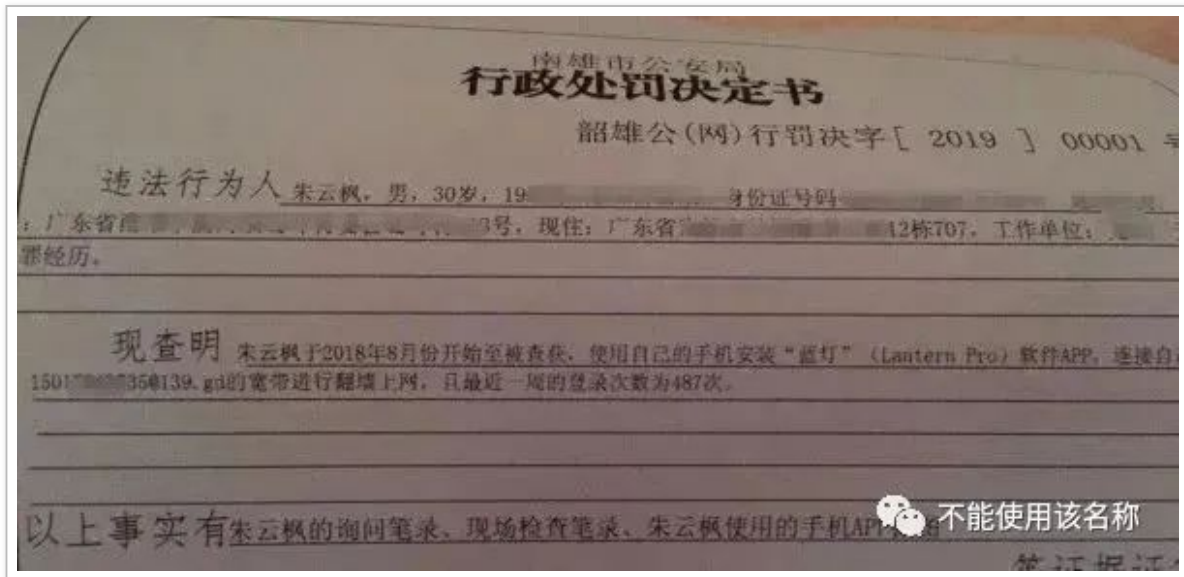 南雄市公安局
行政处罚决定书
韶雄公(网)行罚决字[ 2019 ] 00001 号
违法行为人 朱云枫，男，30岁，19 身份证号码
：广东省 3号，现住：广东省 12栋707，工作单位：
罪经历。
现查明 朱云枫于2018年8月份开始至被查获，使用自己的手机安装“蓝灯”（Lantern Pro）软件APP，连接自
1501 350139.gd的宽带进行翻墙上网，且最近一周的登录次数为487次。
以上事实有朱云枫的询问笔录、现场检查笔录、朱云枫使用的手机APP
不能使用该名称
等证据证